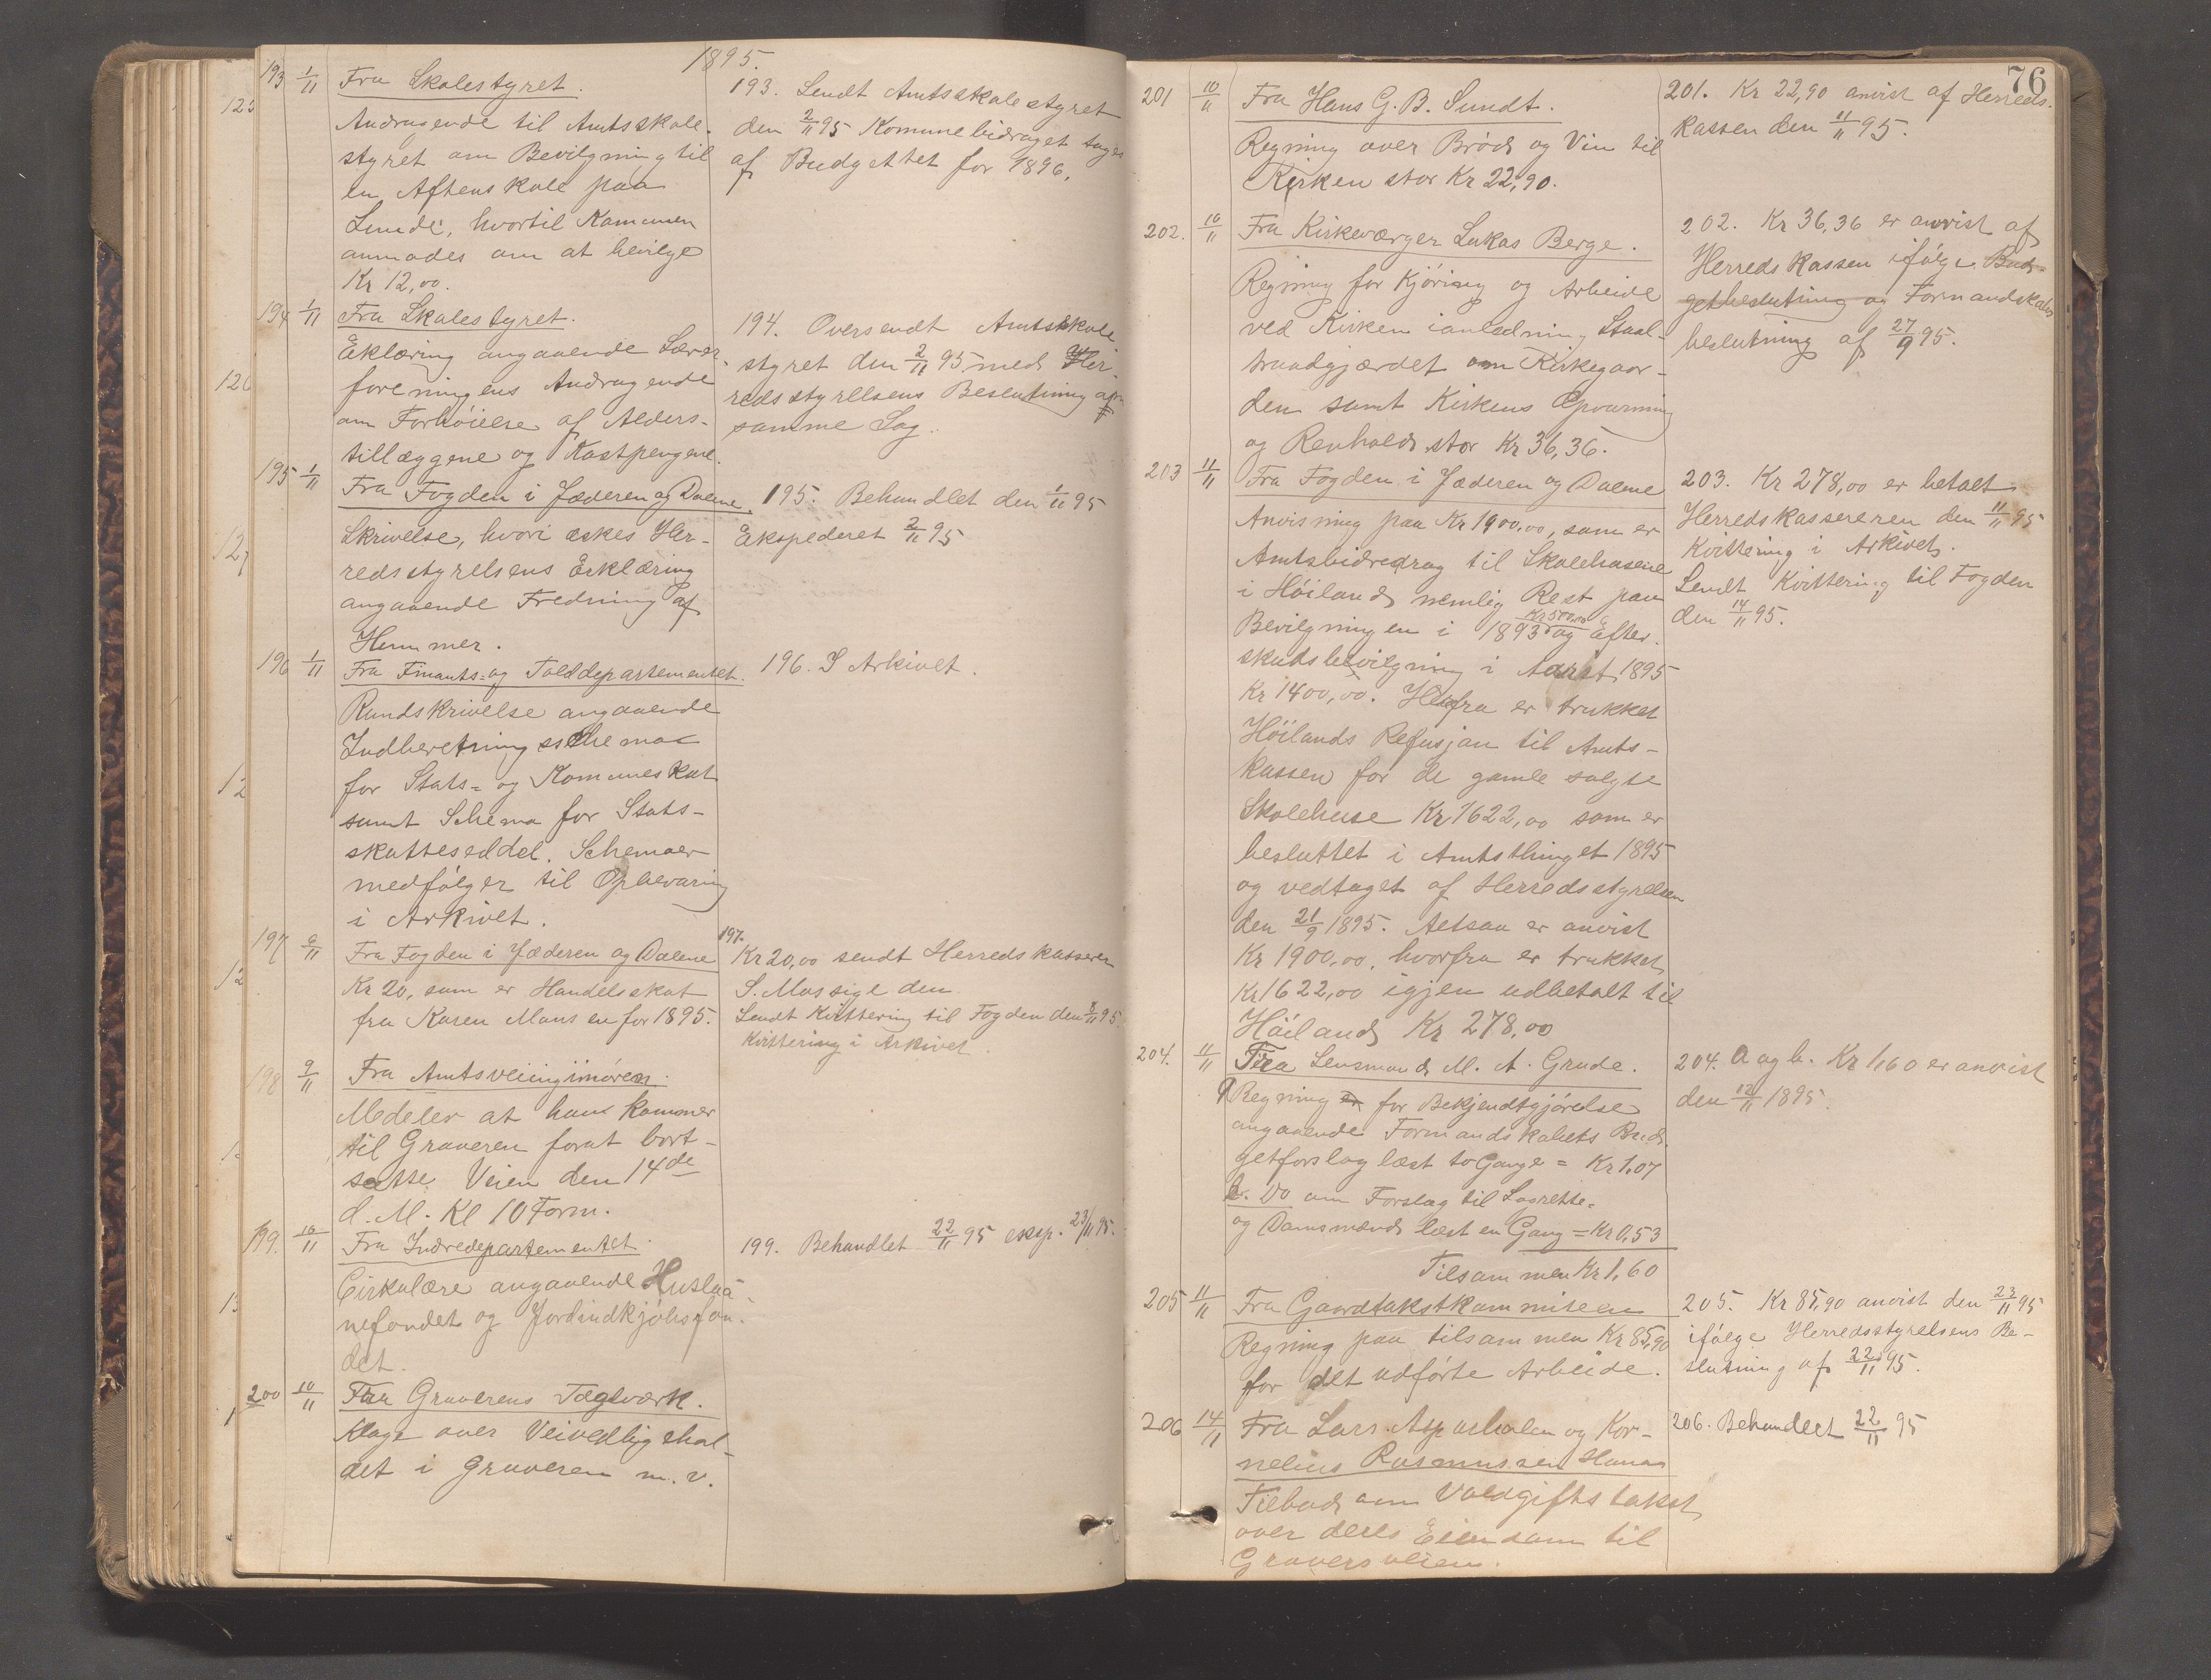 1895.
193 1/11 Fra Skolestyret.
Andragende til Amtsskole-
styret om Bevilgning til
en Aftenskole paa
Lunde, hvortil Kommunen
anmodes om at bevilge
Kr 12,00.
193. Sendt Amtsskolestyret
den 2/11 95 Komunebidraget tages
af Budgettet for 1896.
194 1/11 Fra Skolestyret.
Eklæring angaaende Lærer-
foreningens Andragende
om Forhöielse af Alders-
tillæggene og Kostpengene.
194. Oversendt Amtsskole
styret den 2/11 95 med Her-
redsstyrelsens Beslutning
samme Dag.
195 1/11 Fra Fogden i Jæderen og Dalene.
Skrivelse, hvori æskes Her-
redsstyrelsens Erklæring
angaaende Fredning af
Hummer.
195. Behandlet den 1/11 95
Ekspederet 2/11 95
196 1/11 Fra Finants- og Tolddepartementet.
Rundskrivelse angaaende
Indberetningsschemaer
for Stats- og Komuneskat
samt Schema for Stats-
skatteseddel. Schemaer
medfölger til Opbevaring
i Arkivet.
196. I Arkivet.
197 6/11 Fra Fogden i Jæderen og Dalene
Kr 20, som er Handelsskat
fra Karen Mausen for 1895.
197.
Kr 20,00 sendt Herredskasserer
S. Mossige den
Sendt Kvittering til Fogden den 8/11 95
Kvittering i Arkivet.
198 9/11 Fra Amtsveiinginiören.
Medeler at han kommer
til Graveren forat bort-
sætte Veien den 14de
d. M. Kl 10 Form.
199. 10/11 Fra Indredepartementet.
Cirkulære angaaende Huslaa-
nefondet og Jordindkjöbsfon-
det.
199. Behandlet 22/11 95 eksp. 23/11 95.
200 10/11 Fra Graverens Teglværk.
Klage over Veivedligehol-
det i Graveren m. v.
76
201 10/11 Fra Hans G. B. Sundt.
Regning over Bröd og Vin til
Kirken stor Kr 22,90.
201. Kr 22,90 anvist af Herreds-
kassen den 11/11 95.
202. 10/11 Fra Kirkeværger Lukas Berge.
Regning for Kjöring og Arbeide
ved Kirken ianledning Staal-
traadgjærdet om Kirkegaar-
den samt Kirkens Opvarming
og Renhold stor Kr 36,36.
202. Kr 36,36 er anvist af
Herredskassen ifölge Bud-
getbeslutning og Formandskabs
beslutning af 27/9 95.
203 11/11 Fra Fogden i Jæderen og Dalene
Anvisning paa Kr 1900,00, som er
Amtsbidredrag til Skolehusene
i Höiland nemlig Rest paa
Bevilgningen i 1893 Kr 500,00 og efter-
skudsbevilgning i Aaret 1895
Kr 1400,00. Herfra er trukket
Höilands Refusjon til Amts-
kassen for de gamle solgte
Skolehuse Kr 1622,00 som er
besluttet i Amtsthinget 1895
og vedtaget af Herredsstyrelsen
den 21/9 1895. Aetsaa er anvist
Kr 1900,00, hvorfra er trukket
Kr 1622,00 igjen udbetalt til
Höiland Kr 278,00
203. Kr 278,00 er betalt
Herredskassereren den 11/11 95
Kvittering i Arkivet.
Sendt Kvittering til Fogden
den 14/11 95.
204. 11/11 Fra Lensmand M. A. Grude.
Regning for Bekjendtgjörelse
angaaende Formandskabets Bud-
getforslag læst to Gange = Kr 1,07
b. Do om Forslag til Lagrette-
og Domsmænd læst en Gang = Kr 0,53
Tilsammen Kr 1,60
204. a og b. Kr 1,60 er anvist
den 12/11 1895.
205 11/11 Fra Gardtakstkommiteen
Regning paa tilsammen Kr 85,90
for det udförte Arbeide.
205. Kr 85,90 anvist den 23/11 95
ifölge Herredsstyrelsens Be-
slutning af 22/11 95.
206 14/11 Fra Lars Asparholen og Kor-
nelius Rasmussen Hana
Tilbud om Voldgifts takst
over deres Eiendom til
Graversveien.
206. Behandlet 22/11 95